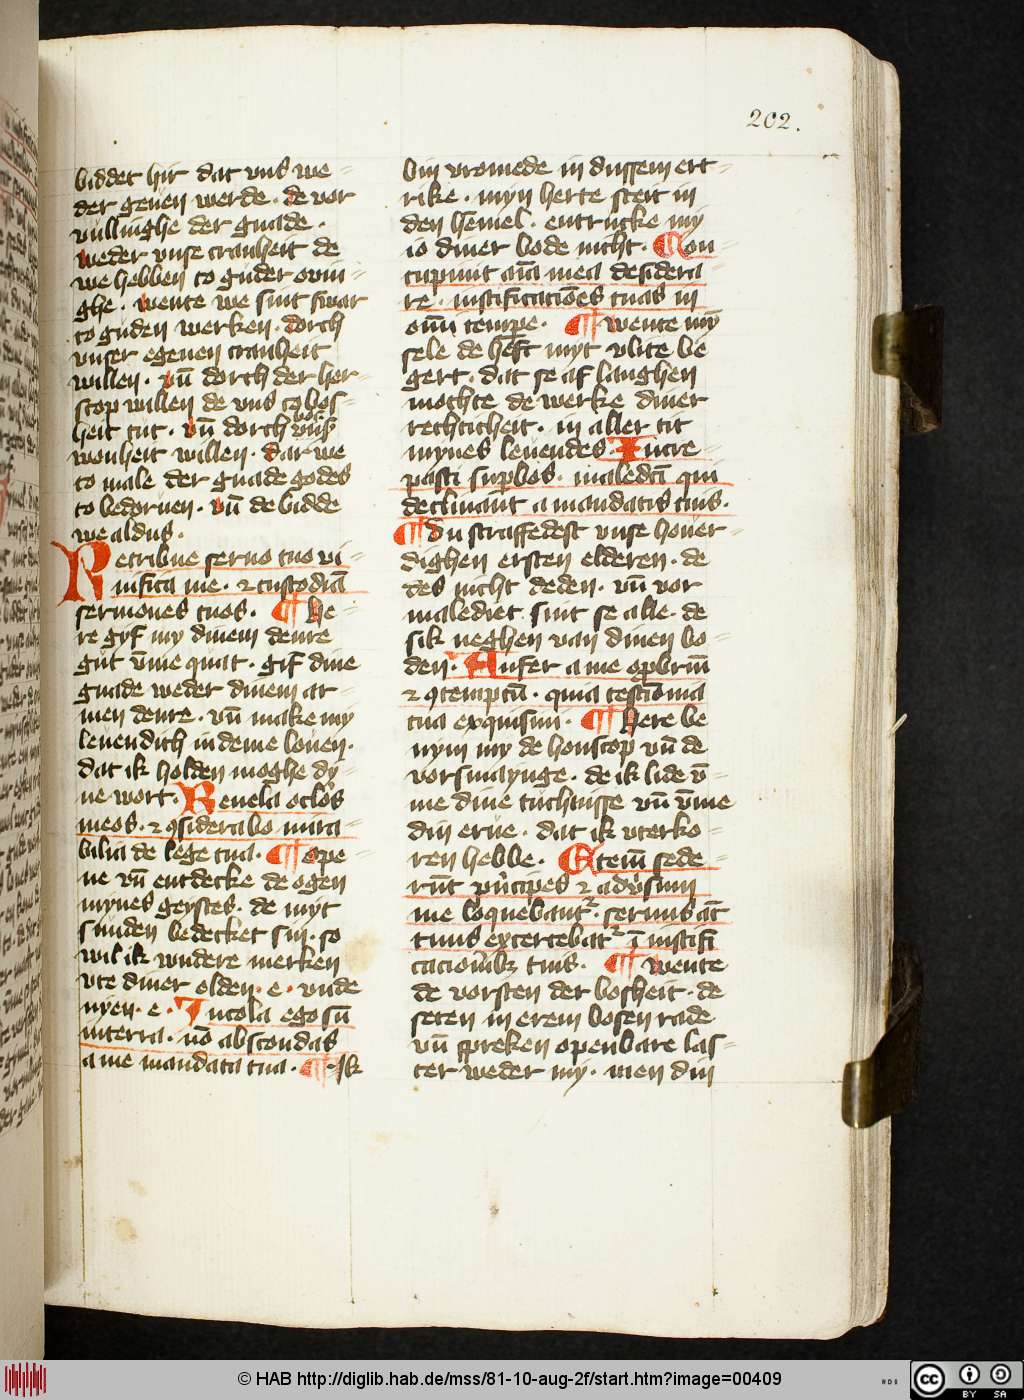 202.
biddet hir dat vns we=
der geuen werde. de vor
vullinghe der gnade.
weder vnse cranheit de
we hebben to guder ouin=
ghe. wente we sint swar
to guden werken. dorch
vnser egenen cranheit
willen. vn̄ dorch der her=
scop willen de vns to bos=
heit tut. vn̄ dorch
wonheit willen. dar we
to male der gnade godes
to bedoruen. vn̄ de bidde
we aldus.
Retribue seruo tuo vi=
uifica me. ⁊ custodiā
sermones tuos. ¶ He=
re gyf my dinem denre
gut vm̄e quat. gif dine
gnade weder dinem ar=
men denre. vn̄ make my
leuendich in deme louen.
dat ik holden moghe dy=
ne wort. Reuela oclos
meos. ⁊ ꝯsiderabo mira=
bilia de lege tua. ¶ Ope=
ne vn̄ entdecke de ogen
mynes geystes. de myt
sunden bedecket sin. so
wil ik wndere merken
vte diner olden. e. vnde
nyen. e. Incola ego sū
in terra. nō abscondas
a me mandata tua. ¶ Ik
bin vromede in dussem ert=
rike. myn herte steit in
den hēmel. entrucke my
io diner bode nicht. Con=
cupiuit aīa mea desidera=
re. iustificatiōes tuas in
om̄i tempe. ¶ wente mȳ
sele de heft myt vlite be
gert. dat se af langhen
mochte de werke diner
rechticheit. in aller tit
mynes leuendes. Incre=
pasti supbos. maledcī qui
declinant a mandatis tuis.
¶ Du straffedest vnse houer=
dighen ersten elderen. de
des nicht deden. vn̄ vor
maledict sint se alle. de
sik neghen van dinen bo=
den. Aufer a me opbriū
⁊ ꝯtemptū. quia testīonia
tua exquisiui. ¶ Here be
nym my de honscop vn̄ de
vorsmaynge. de ik lide v̄=
me dine tuchtnisse vn̄ vm̄e
din erue. dat ik vterko=
ren hebbe. Etem̄ sede=
rūt pncipes ⁊ adusum
me loquebant᷑. seruus aūt
tuus exercebat᷑ ī iustifi
cacionibꝫ tuis. ¶ wente
de vorsten der bosheit. de
seten in erem bosen rade
vn̄ spreken openbare las=
ter weder my. men din
© HAB http://diglib.hab.de/mss/81-10-aug-2f/start.htm?image=00409
HAB
cc BY SA